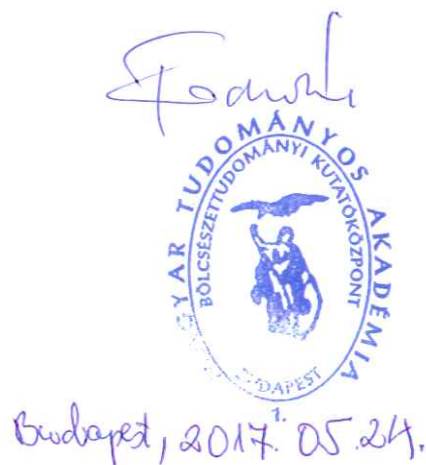 MAGYAR TUDOMÁNYOS AKADÉMIA
BÖLCSÉSZETTUDOMÁNYI KUTATÓKÖZPONT
BUDAPEST
1.
Budapest, 2017. 05. 24.